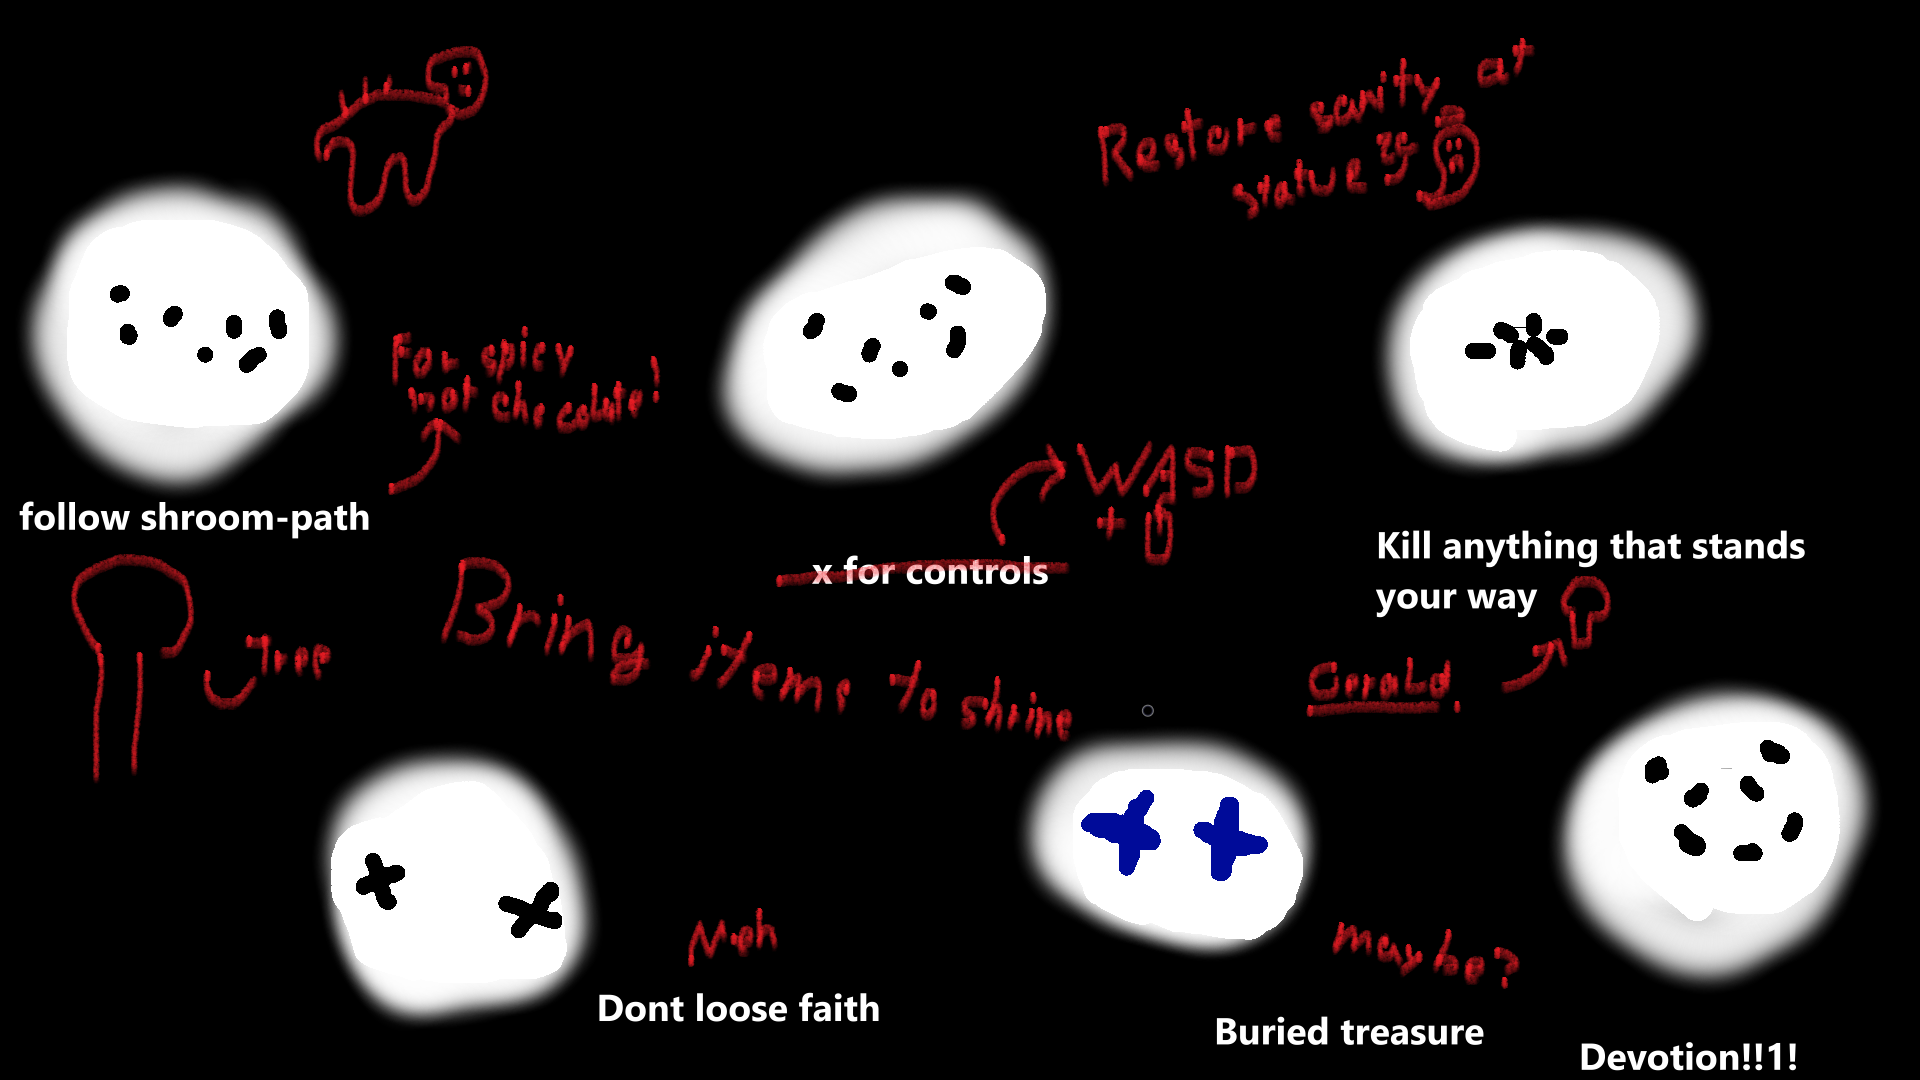 Restore sanity at
statue
For spicy
hot chocolate!
follow shroom-path
WASD
+
x for controls
Kill anything that stands
your way
Tree
Bring items to shrine
Gerald!
Meh
Dont loose faith
maybe?
Buried treasure
Devotion!!1!